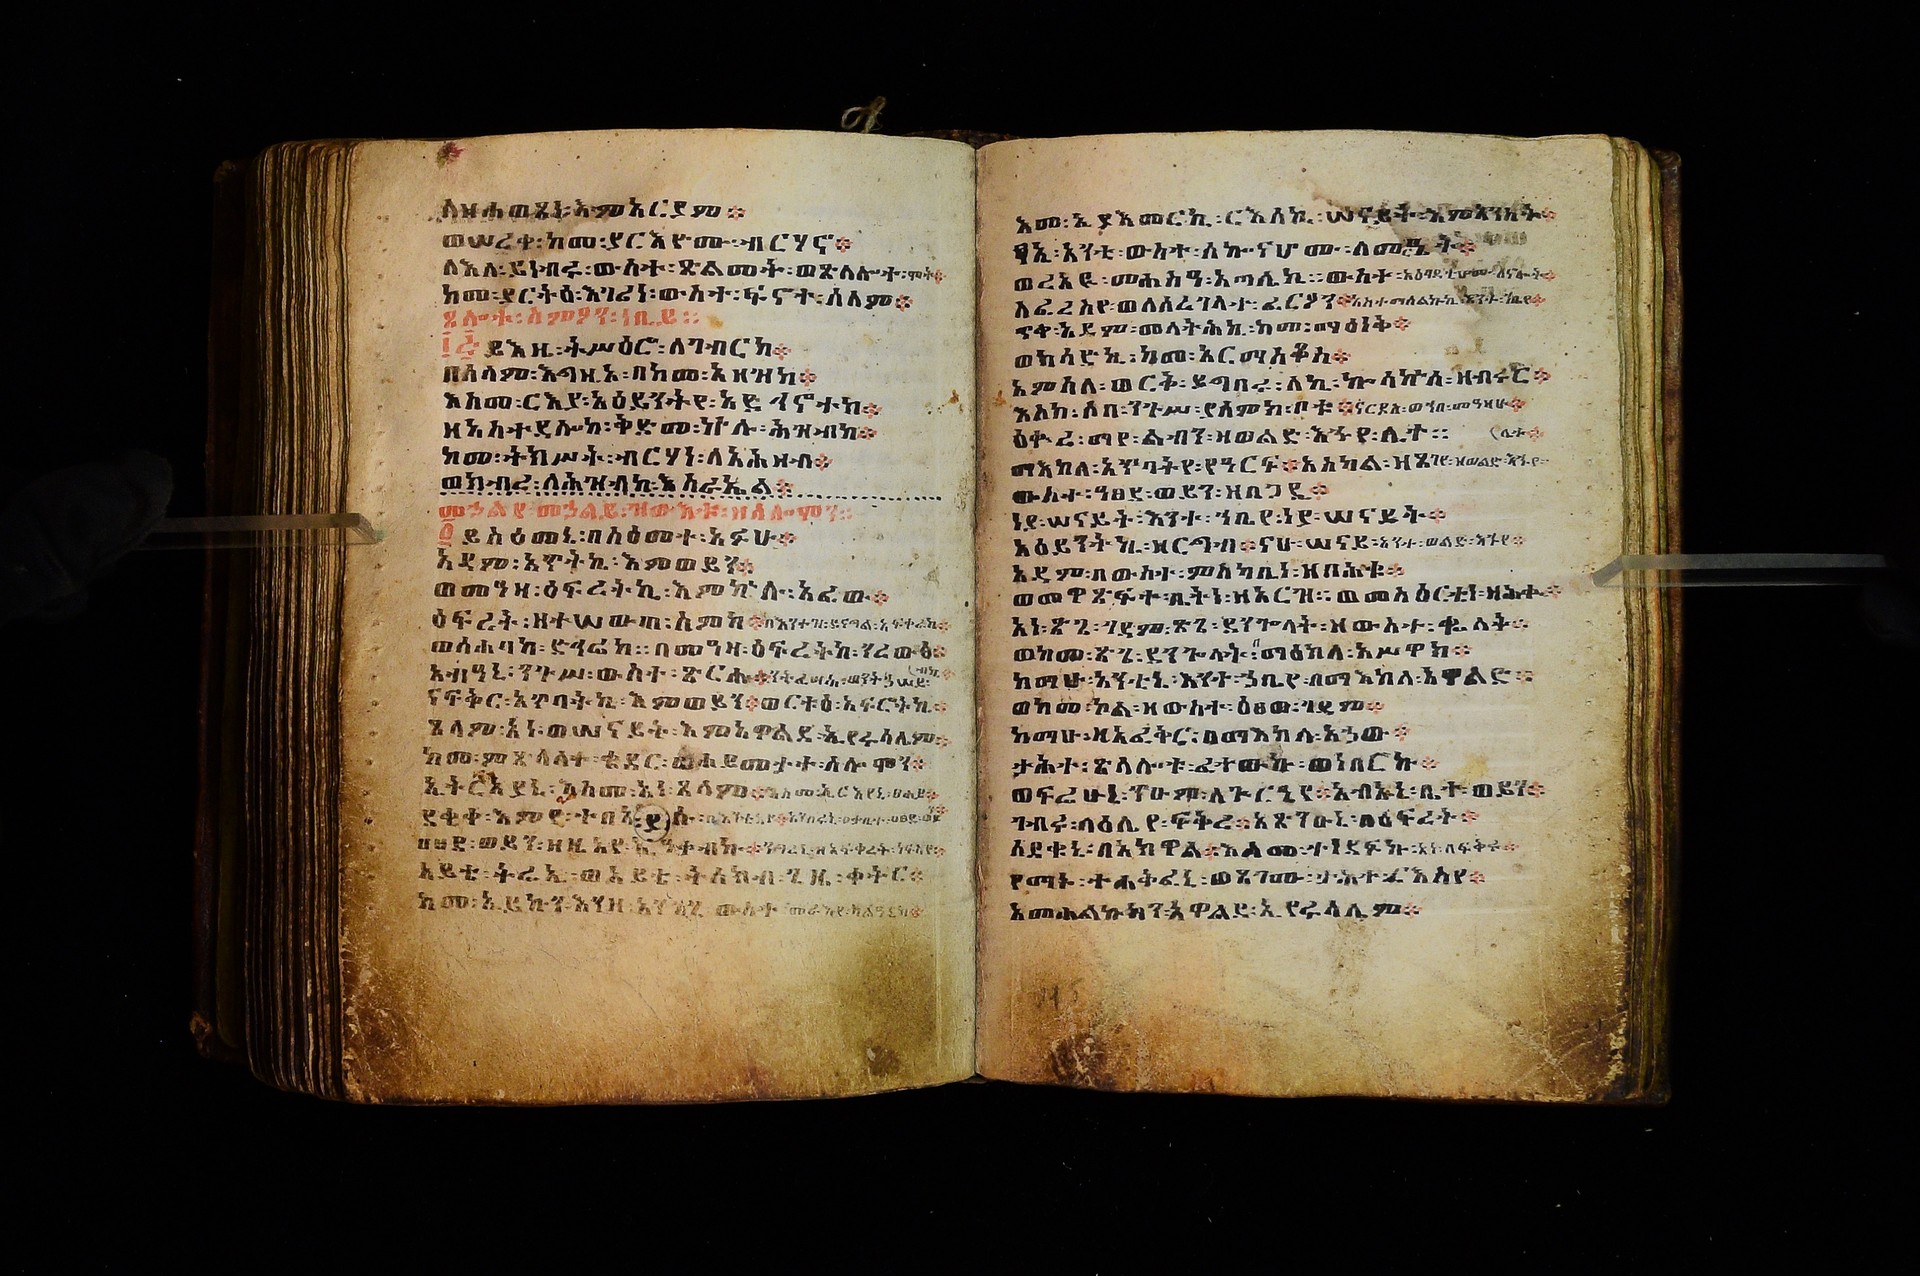 ለዘሐወጸነ፡እምአርያም፨
ወሠረቀ፡ከመ፡ያርእዮሙ፡ብርሃኖ፨
ለእለ፡ይነብሩ፡ውስተ፡ጽልመት፡ወጽላሎተ፡ሞት፨
ከመ፡ያርትዕ፡እገሪነ፡ውስተ፡ፍኖተ፡ሰላም፨
ጸሎተ፡ስምዖን፡ነቢይ፡፡
፲፭ ይእዜ፡ትሥዕሮ፡ለገብርከ፨
በሰላም፡እግዚኦ፡በከመ፡አዘዝከ፨
እስመ፡ርእያ፡አዕይንትየ፡አድኅኖተከ፨
ዘአስተዳሎከ፡ቅድመ፡ኵሉ፡ሕዝብከ፨
ከመ፡ትክሥት፡ብርሃነ፡ለአሕዛብ፨
ወክብረ፡ለሕዝብከ፡እስራኤል፨
መኃልየ፡መኃልይ፡ዝውእቱ፡ዘሰሎሞን፡፡
፩ ይስዕመኒ፡በስዕመተ፡አፉሁ፨
አዳም፡አጥባትኪ፡እምወይን፨
ወመዓዛ፡ዕፍረትኪ፡እምኵሉ፡አፈው፨
ዕፍረት፡ዘተሠውጠ፡ስምከ፨
ወሰሐባከ፡ድኅሬከ፡፡በመዓዛ፡ዕፍረትከ፡ንረውፅ፨
አብዓኒ፡ንጉሥ፡ውስተ፡ጽርሑ፨
ናፍቅር፡አጥባትኪ፡እምወይን፨ወርቱዕ፡አፍቅሮትኪ፨
ጸላም፡አነ፡ወሠናይት፡እምአዋልደ፡ኢየሩሳሌም፨
ከመ፡ምጽላላተ፡ቄዳር፡ወሐይመታተ፡ሰሎሞን፨
ኢትርእያኒ፡እስመ፡አነ፡ጸላም፨
ደቂቀ፡እምየ፡ተበአሱ፡
ዐፀደ፡ወይን፡ዘዚአየ፡ኢዓቀብኩ፨
አይቴ፡ትሬኢ፡ወአይቴ፡ትሰክብ፡ጊዜ፡ቀትር፨
ከመ፡ኢይኩን፡እንዘ፡አንሶሱ፡ውስተ፡
እመ፡ኢያእመርኪ፡ርእሰኪ፡ሠናይት፡እምአንስት፨
ፃኢ፡አንቲ፡ውስተ፡ሰኰናሆሙ፡ለመዓት፨
ወረአዪ፡መሐስዓ፡አጣሊኪ፡፡ውስተ፡
ለፈረስየ፡ወለሰረገላተ፡ፈርዖን፨
ጥቀ፡አዳም፡መላትሕኪ፡ከመ፡ማዕነቅ፨
ወክሳድኪ፡ከመ፡አርማስቆስ፨
አምሳለ፡ወርቅ፡ይግበሩ፡ለኪ፡ኰሳኵሰ፡ዘብሩር፨
እስከ፡ሶበ፡ንጉሥ፡ያሰምክ፡ቦቱ፨
ዕቍረ፡ማየ፡ልብን፡ዘወልድ፡እኁየ፡ሊተ፡፡
ማእከለ፡አጥባትየ፡የዓርፍ፨አስካል፡ዘጸገየ፡ዘወልድ፡እኁየ፨
ውስተ፡ዓፀደ፡ወይን፡ዘበጋዲ፨
ነያ፡ሠናይት፡እንተ፡ኀቤየ፡ነያ፡ሠናይት፨
አዕይንትኪ፡ዘርግብ፨ናሁ፡ሠናይ፡
አዳም፡በውስተ፡ምስካቢነ፡ዘበሕቁ፨
ወመዋጽፍተ፡ቤትነ፡ዘአርዝ፡፡ወመስዕርቲነ፡
አነ፡ጽጌ፡ገዳም፡ጽጌ፡ደንጐላት፡ዘውስተ፡ቈላት፨
ወከመ፡ጽጌ፡ደንጐላት፡በማዕከለ፡አሥዋክ፨
ከማሁ፡አንቲኒ፡እንተ፡ኃቤየ፡በማእከለ፡አዋልድ፡፡
ወከመ፡ኮል፡ዘውስተ፡ዕፀወ፡ገዳም፨
ከማሁ፡ዘአፈቅር፡በማእከለ፡አኃው፨
ታሕተ፡ጽላሎቱ፡ፈተውኩ፡ወነበርኩ፨
ወፍሬሁኒ፡ጥዑም፡ለጕርዔየ፨አብኡኒ፡ቤተ፡ወይን፨
ግብሩ፡ሳዕሌየ፡ፍቅረ፨አጽንዑኒ፡በዕፍረት፨
ሰደቁኒ፡በአክዋል፨እስመ፡ተነደፍኩ፡አነ፡በፍቅር፨
የማኑ፡ተሐቅፈኒ፡ወጸጋሙ፡ታሕተ፡ርእስየ፨
አመሐልኩክን፡አዋልደ፡ኢየሩሳሌም፨